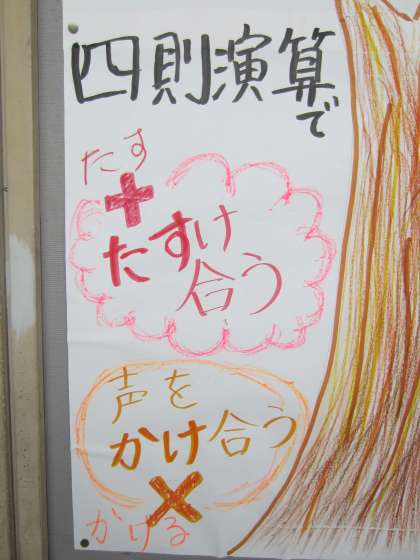 四則演算で
たす
+
たすけ
合う
声を
かけ合う
×
かける